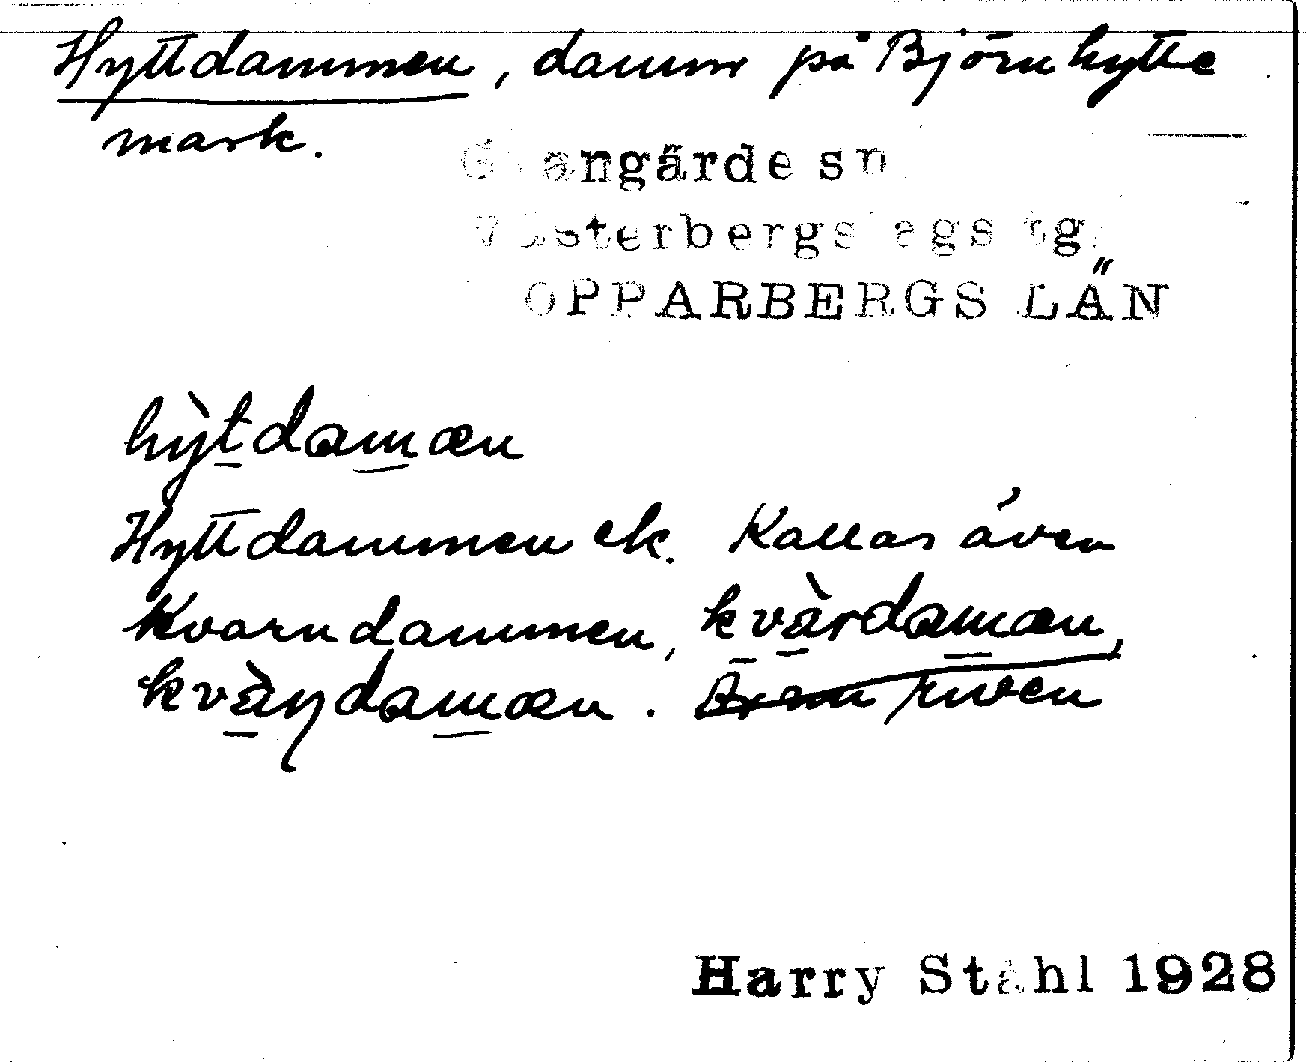 Hyttdammen, damm på Björnhytte
mark.
Grangärde sn
Västerbergslags tg.
KOPPARBERGS LÄN
hỳtdamæn
Hyttdammen ek. Kallas även
Kvarndammen, kvàrdamæn,
kvàṇdamæn. riven
Harry Ståhl 1928